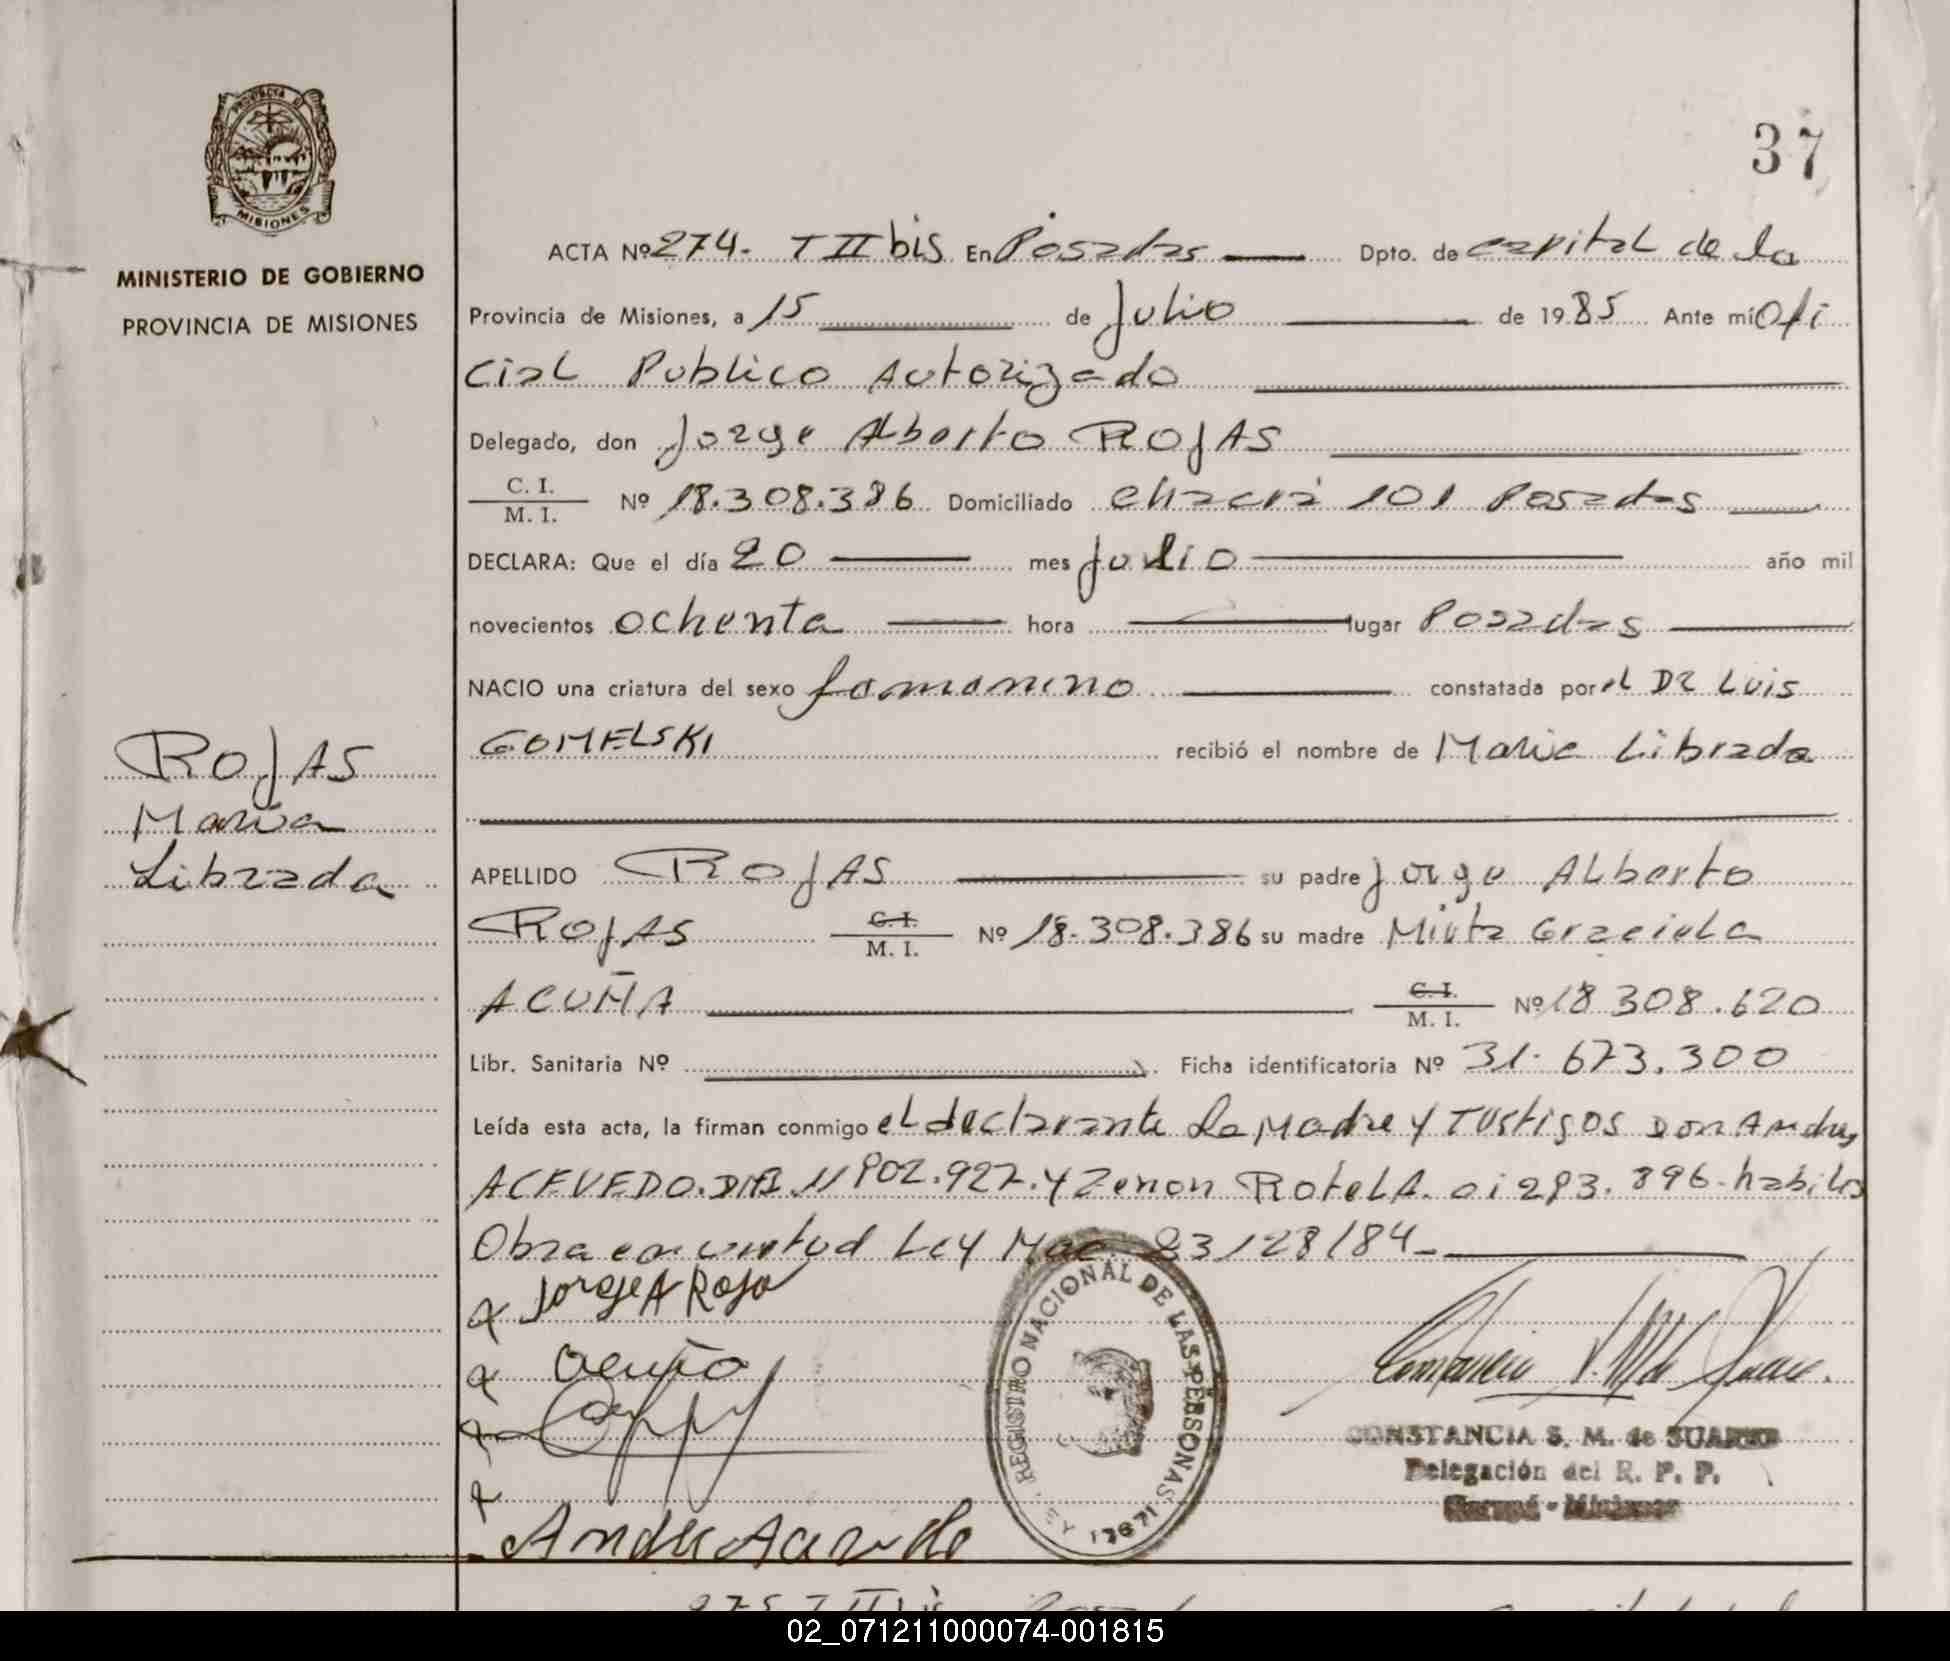 37
PROVINCIA D
MISIONES
MINISTERIO DE GOBIERNO
PROVINCIA DE MISIONES
ACTA Nº 274- T II bis En Posadas Dpto. de capital de la
Provincia de Misiones, a 15 de Julio de 1985 Ante mí Ofi
cial Publico Autorizado
Delegado, don Jorge Alberto ROJAS
C. I.
M. I. Nº 18.308.386 Domiciliado chacra 101 Posadas
DECLARA: Que el día 20 mes Julio año mil
novecientos ochenta hora lugar Posadas
NACIO una criatura del sexo femenino constatada por el DR Luis
GOMELSKI recibió el nombre de Maria Librada
ROJAS
Maria
Librada
APELLIDO ROJAS su padre Jorge Alberto
ROJAS C. I. M. I. Nº 18.308.386 su madre Mirta Graciela
ACUÑA C. I. M. I. Nº 18 308.620
Libr. Sanitaria Nº Ficha identificatoria Nº 31.673.300
Leída esta acta, la firman conmigo el declarante La Madre y Testigos Don Andres
ACEVEDO. DNI 11 802.927. y Zenon Rotela. 293.896. habiles
Obra en virtud Ley 23/128/84-
Jorge A Roja
Acuña
Andre Acevedo
REGISTRO NACIONAL DE LAS PERSONAS
LEY 17671
CONSTANCIA S. M. de SUAREZ
Delegación del R. P. P.
Garupá - Misiones
275 T II bis
02_071211000074-001815